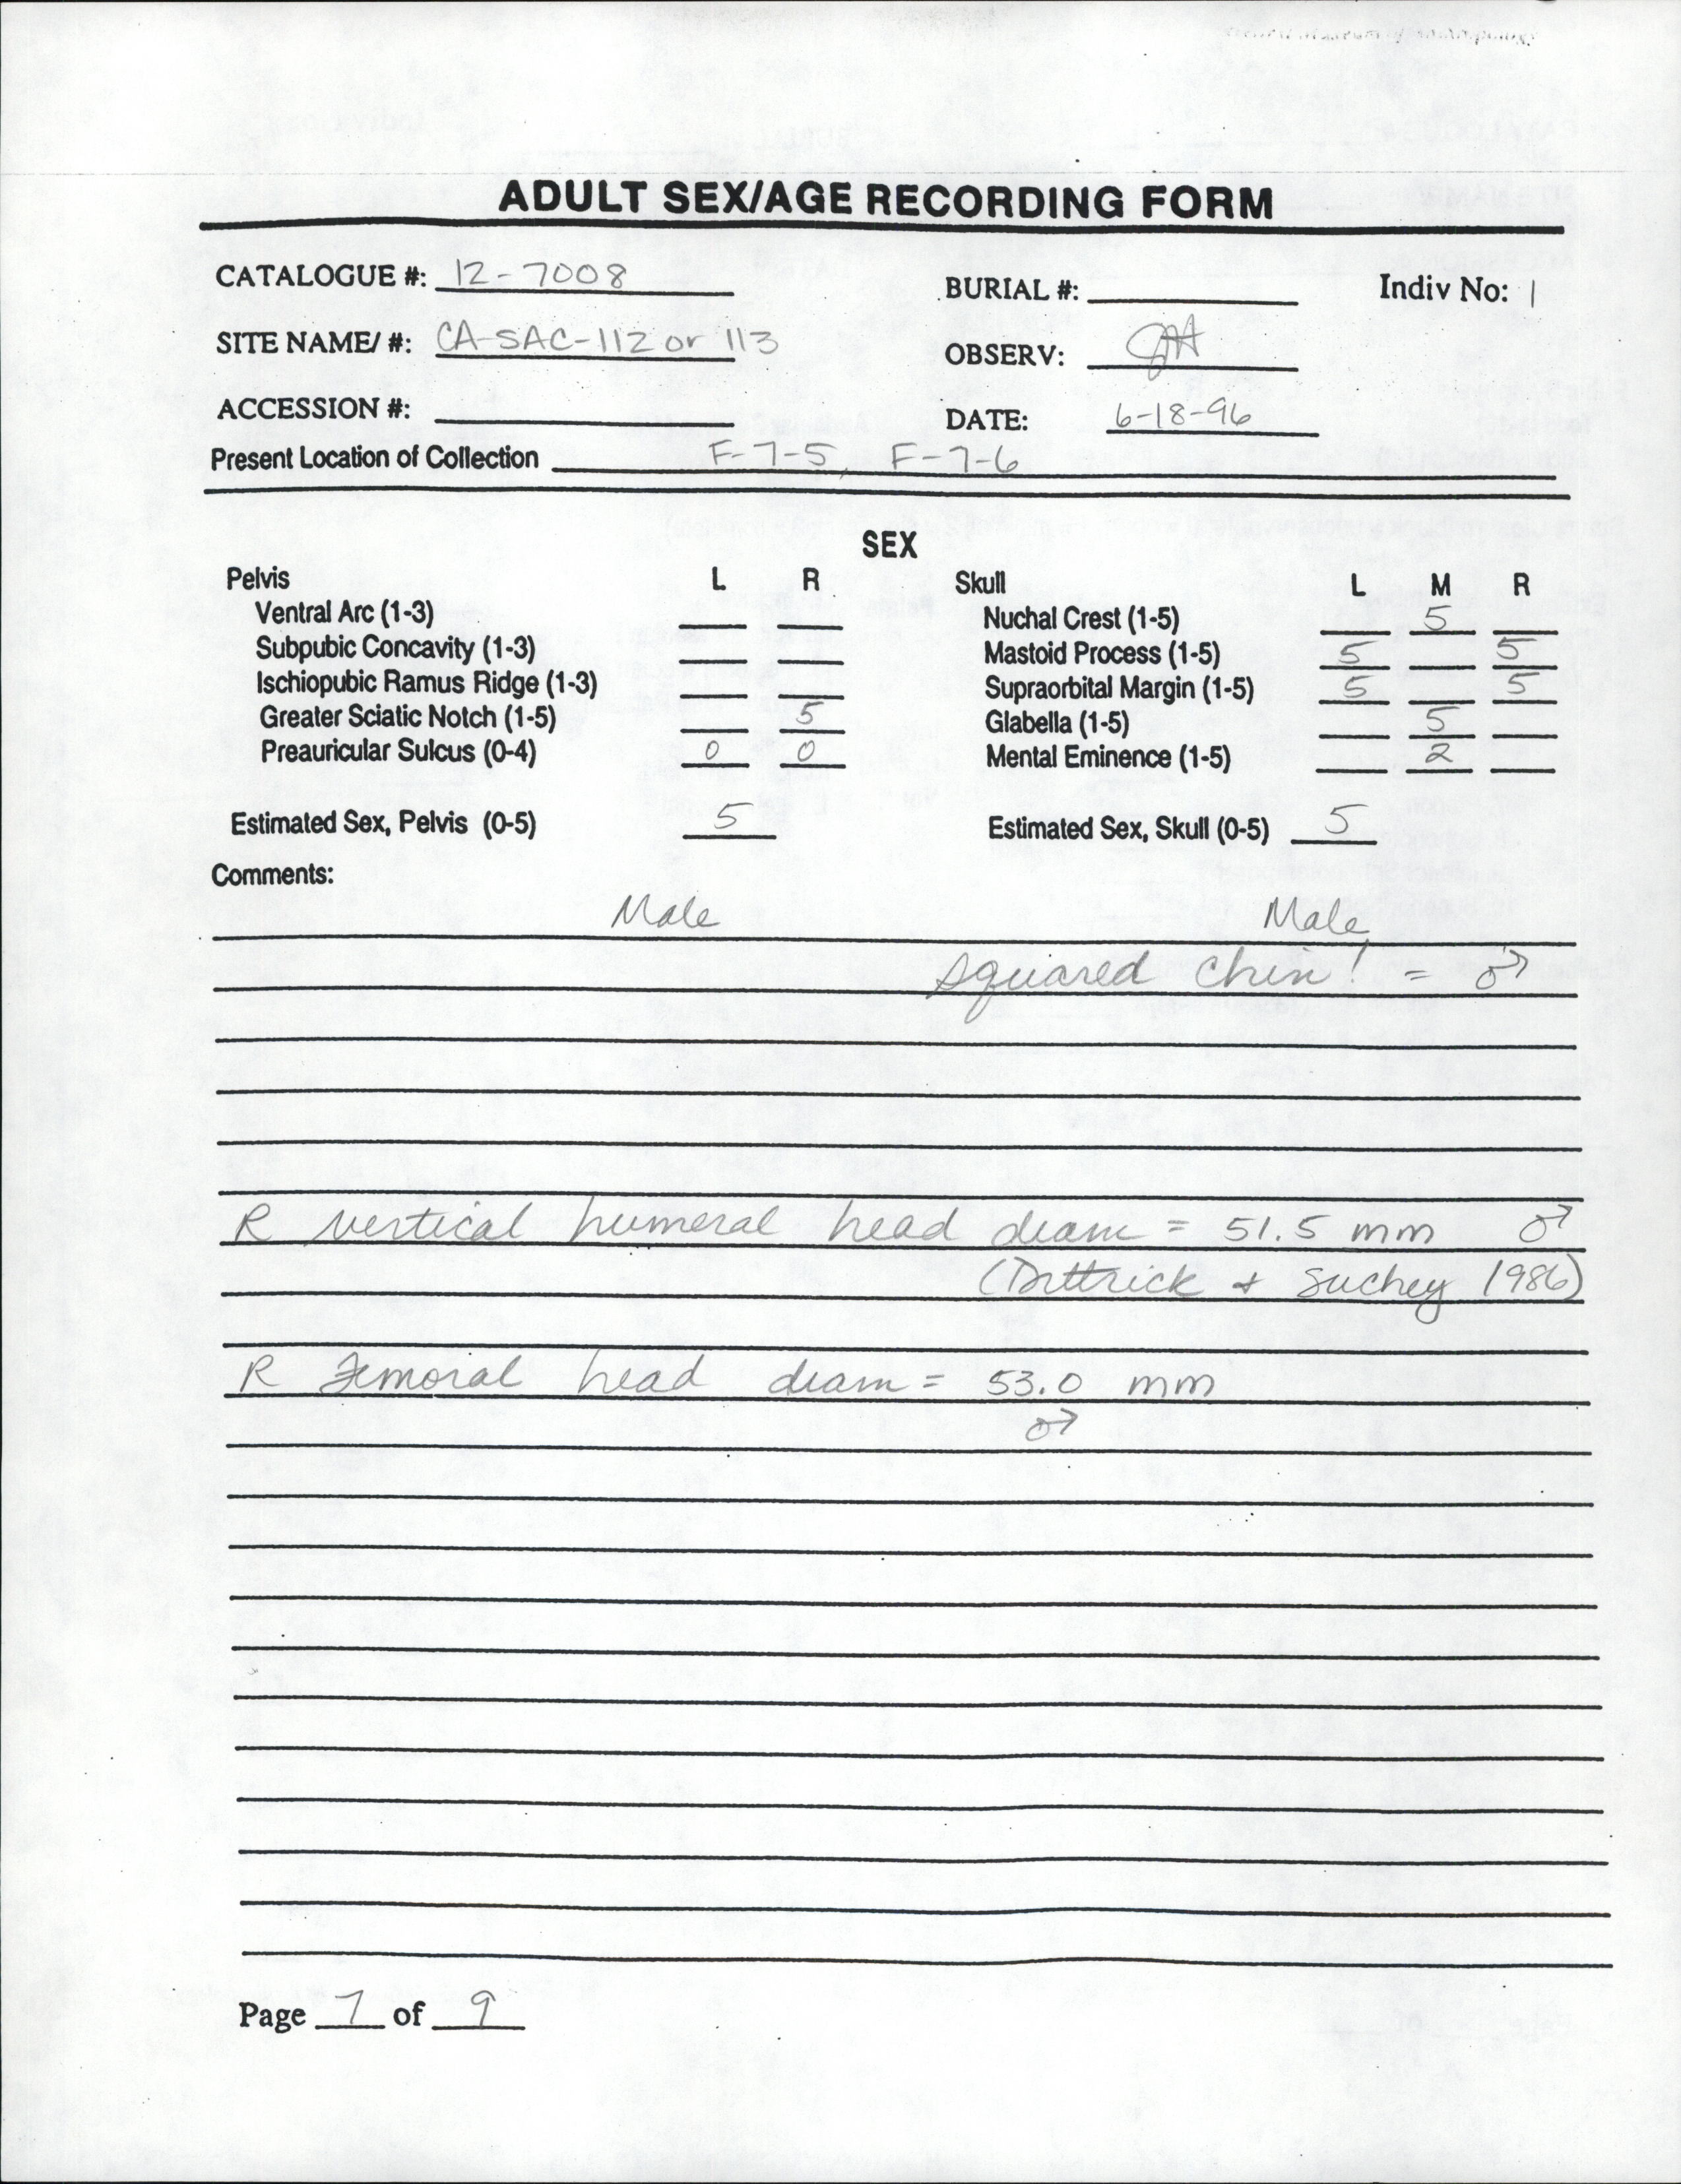 ADULT SEX/AGE RECORDING FORM
CATALOGUE #: 12-7008 BURIAL #: Indiv No: 1
SITE NAME/ #: CA-SAC-112 or 113 OBSERV:
ACCESSION #: DATE: 6-18-96
Present Location of Collection F-7-5, F-7-6
SEX
Pelvis L R Skull L M R
Ventral Arc (1-3) Nuchal Crest (1-5) 5
Subpubic Concavity (1-3) Mastoid Process (1-5) 5 5
Ischiopubic Ramus Ridge (1-3) Supraorbital Margin (1-5) 5 5
Greater Sciatic Notch (1-5) 5 Glabella (1-5) 5
Preauricular Sulcus (0-4) 0 0 Mental Eminence (1-5) 2
Estimated Sex, Pelvis (0-5) 5 Estimated Sex, Skull (0-5) 5
Comments:
Male Male
squared chin! = ♂
R vertical humeral head diam = 51.5 mm ♂
(Dittrick + Suchey 1986)
R Femoral head diam = 53.0 mm
♂
Page 7 of 9